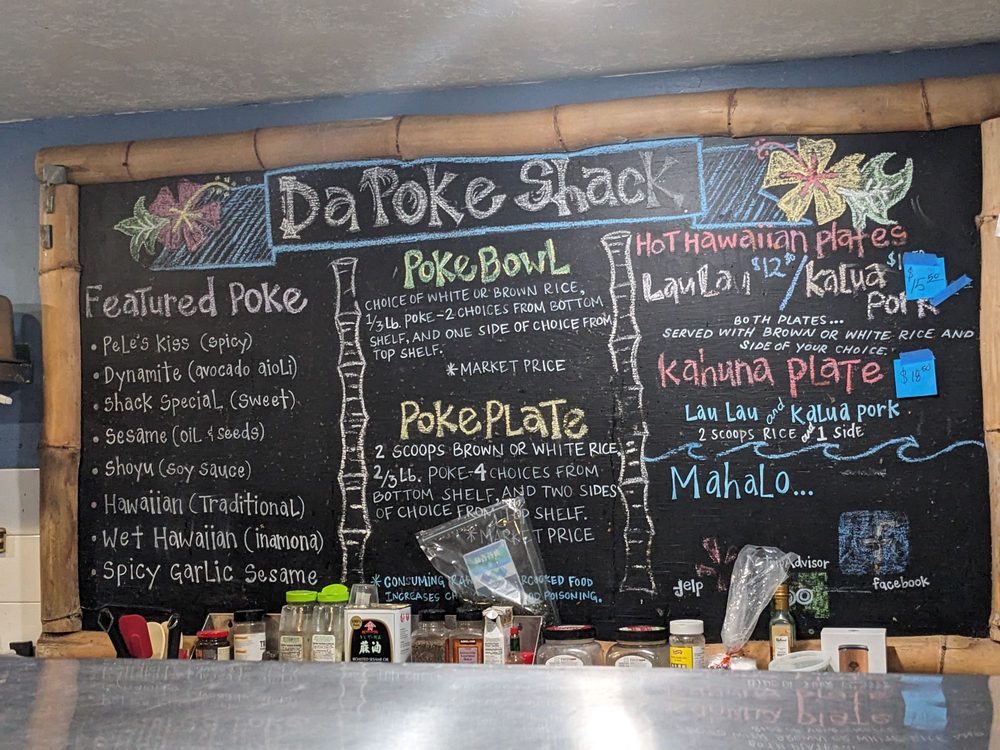 Da Poke Shack
Featured Poke
• Pele's Kiss (spicy)
• Dynamite (avocado aioli)
• Shack Special (sweet)
• Sesame (oil & seeds)
• Shoyu (soy sauce)
• Hawaiian (Traditional)
• Wet Hawaiian (inamona)
• Spicy Garlic Sesame
Poke Bowl
CHOICE OF WHITE OR BROWN RICE,
1/3 lb. POKE-2 CHOICES FROM BOTTOM
SHELF, AND ONE SIDE OF CHOICE FROM
TOP SHELF.
*MARKET PRICE
POKE PLATE
2 SCOOPS BROWN OR WHITE RICE,
2/3 lb. POKE-4 CHOICES FROM
BOTTOM SHELF, AND TWO SIDES
OF CHOICE FROM TOP SHELF.
*MARKET PRICE
*CONSUMING
FOOD
INCREASES
POISONING.
Hot Hawaiian Plates
Lau Lau $12 / Kalua
Pork
$15.50
BOTH PLATES...
SERVED WITH BROWN OR WHITE RICE AND
SIDE OF YOUR CHOICE.
Kahuna Plate
$18
Lau Lau and Kalua pork
2 SCOOPS RICE and 1 SIDE
Mahalo...
yelp
Advisor
facebook
麻油